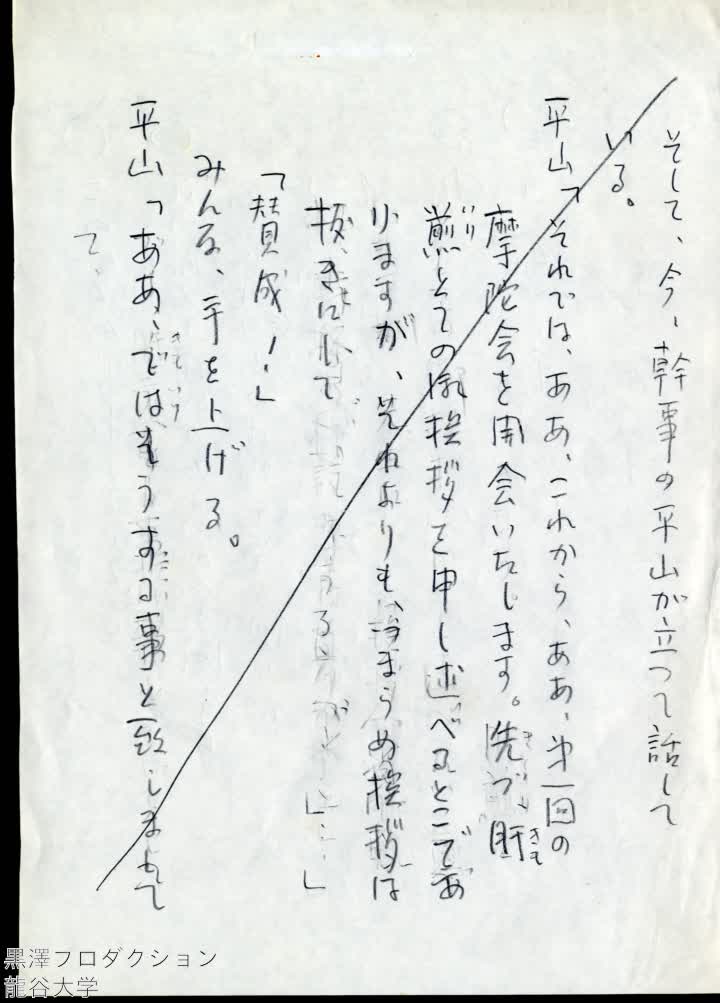 そして、今、幹事の平山が立つて話して
いる。
平山「それでは、ああ、これから、ああ、第一回の
摩陀会を開会いたします。洗づ、肝
煎としての御挨拶を申し述べるとこであ
りますが、それよりも、つまらぬ挨拶は
抜きにして
「賛成！」
みんな、手を上げる。
平山「ああ、ではそうする事と致しまして
て、
黒澤プロダクション
龍谷大学